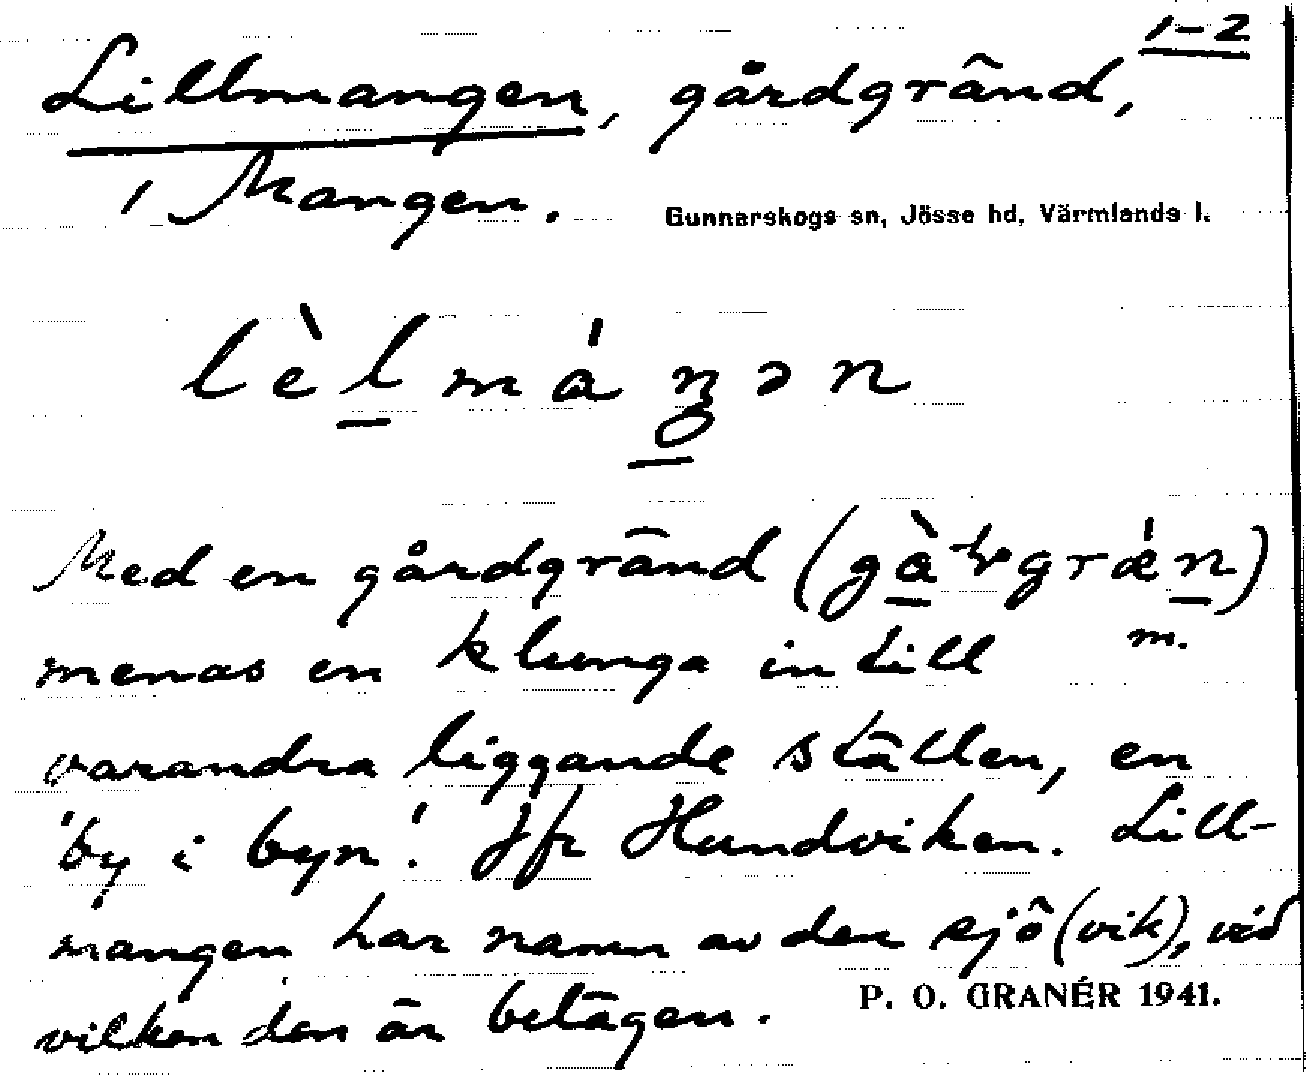 1-2
Lillmangen, gårdgränd,
i Mangen.
Gunnarskogs sn, Jösse hd, Värmlands l.
lèlmáŋən
Med en gårdgränd (
menas en klunga intill m.
varandra liggande ställen, en
'by i byn'. Jfr Hundviken. Lill-
mangen har namn av den sjö (vik), vid
vilken den är belägen.
P. O. GRANÉR 1941.